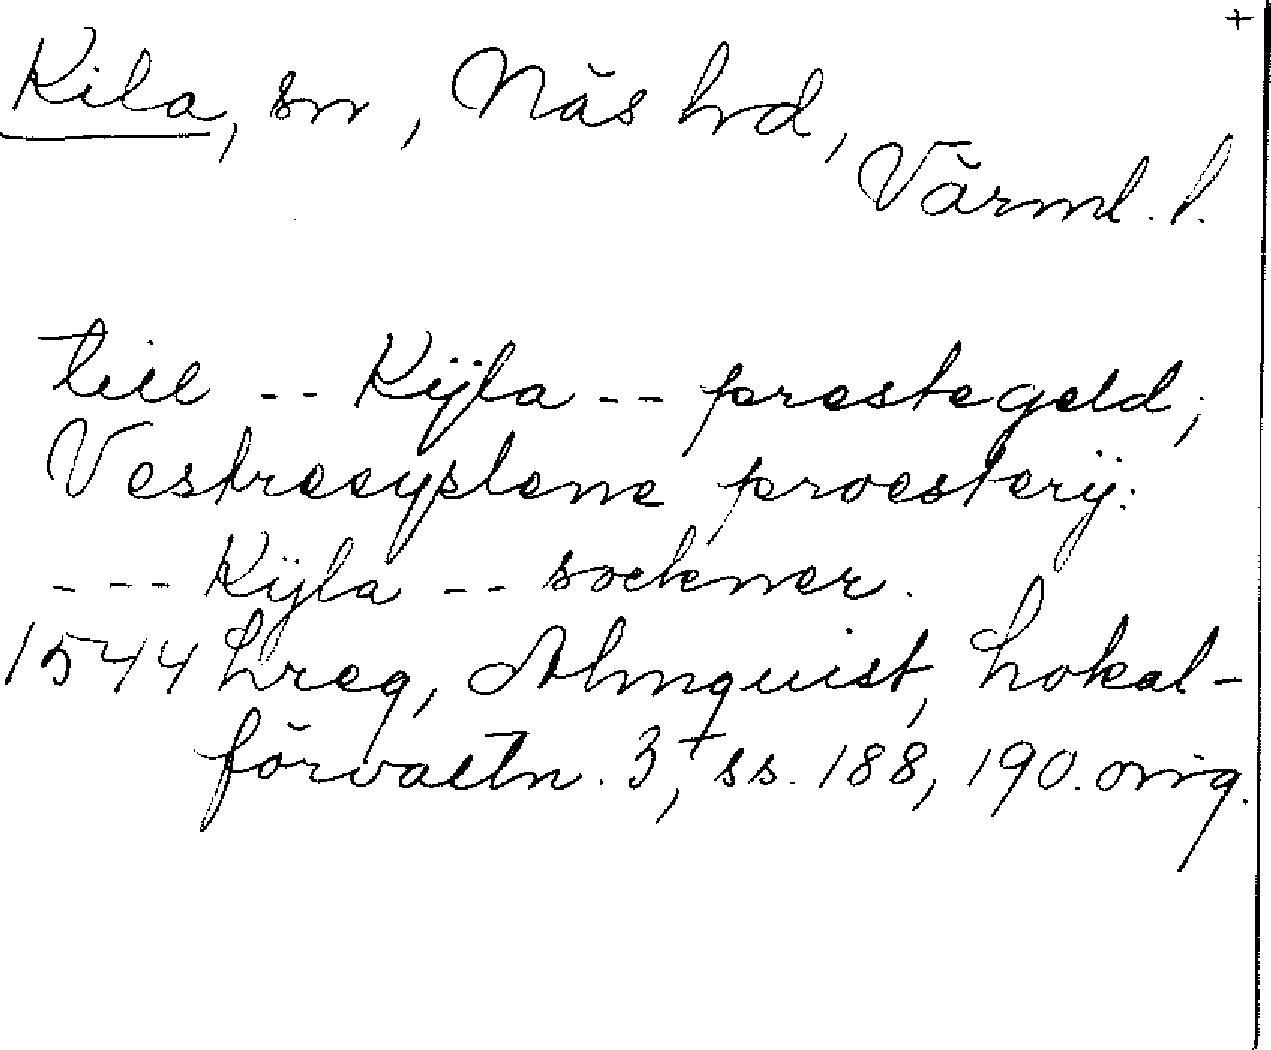 +
Kila, sn, Näs hd,
Värml. l.
till -- Kÿla -- prestegeld;
Vestresyslene proesterÿ:
--- Kÿla -- sockner.
1544 Lreg, Almquist, Lokal-
förvaltn. 3, ss. 188, 190. orig.